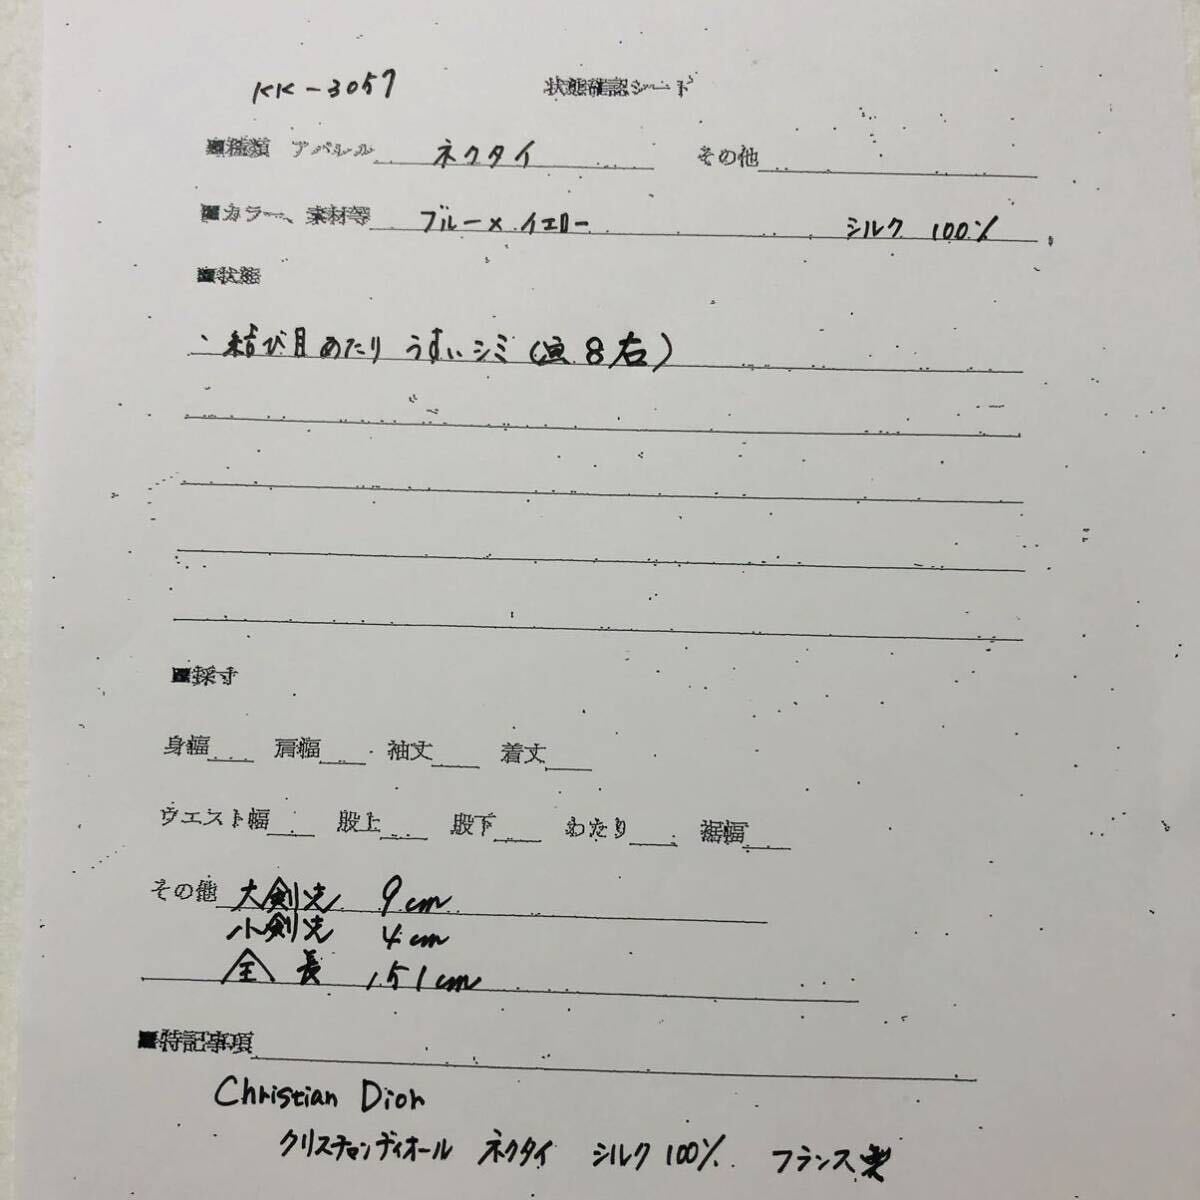 KK-3057 状態確認シート
■種類 アパレル ネクタイ その他
■カラー、素材等 ブルー×イエロー シルク 100%
■状態
・結び目あたり うすいシミ(画8右)
■採寸
身幅 肩幅 袖丈 着丈
ウエスト幅 股上 股下 わたり 裾幅
その他 大剣先 9cm
小剣先 4cm
全長 151cm
■特記事項
Christian Dior
クリスチャンディオール ネクタイ シルク100% フランス製